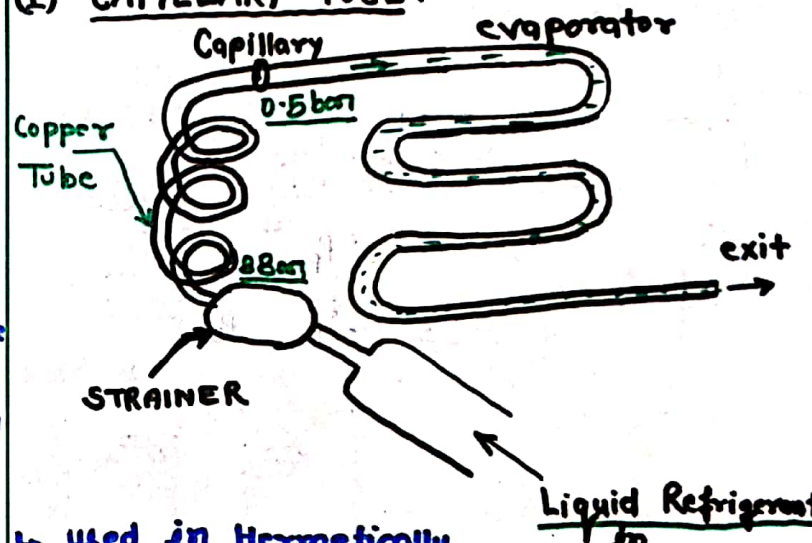 (2) CAPILLARY TUBE:
evaporator
Capillary
0.5 bar
Copper
Tube
8 bar
exit
STRAINER
Liquid Refrigerant
in
↳ used in Hermetically